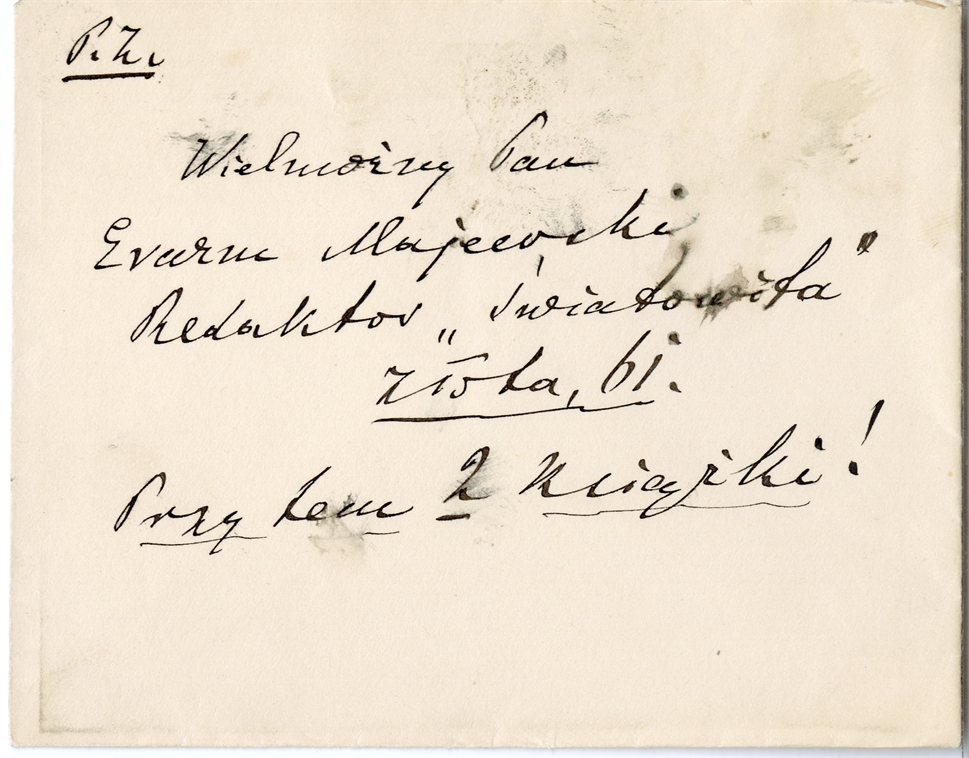 P. Z.
Wielmożny Pan
Erazm Majewski
Redaktor „Światowita"
Złota, 61.
Przy tem 2 książki!